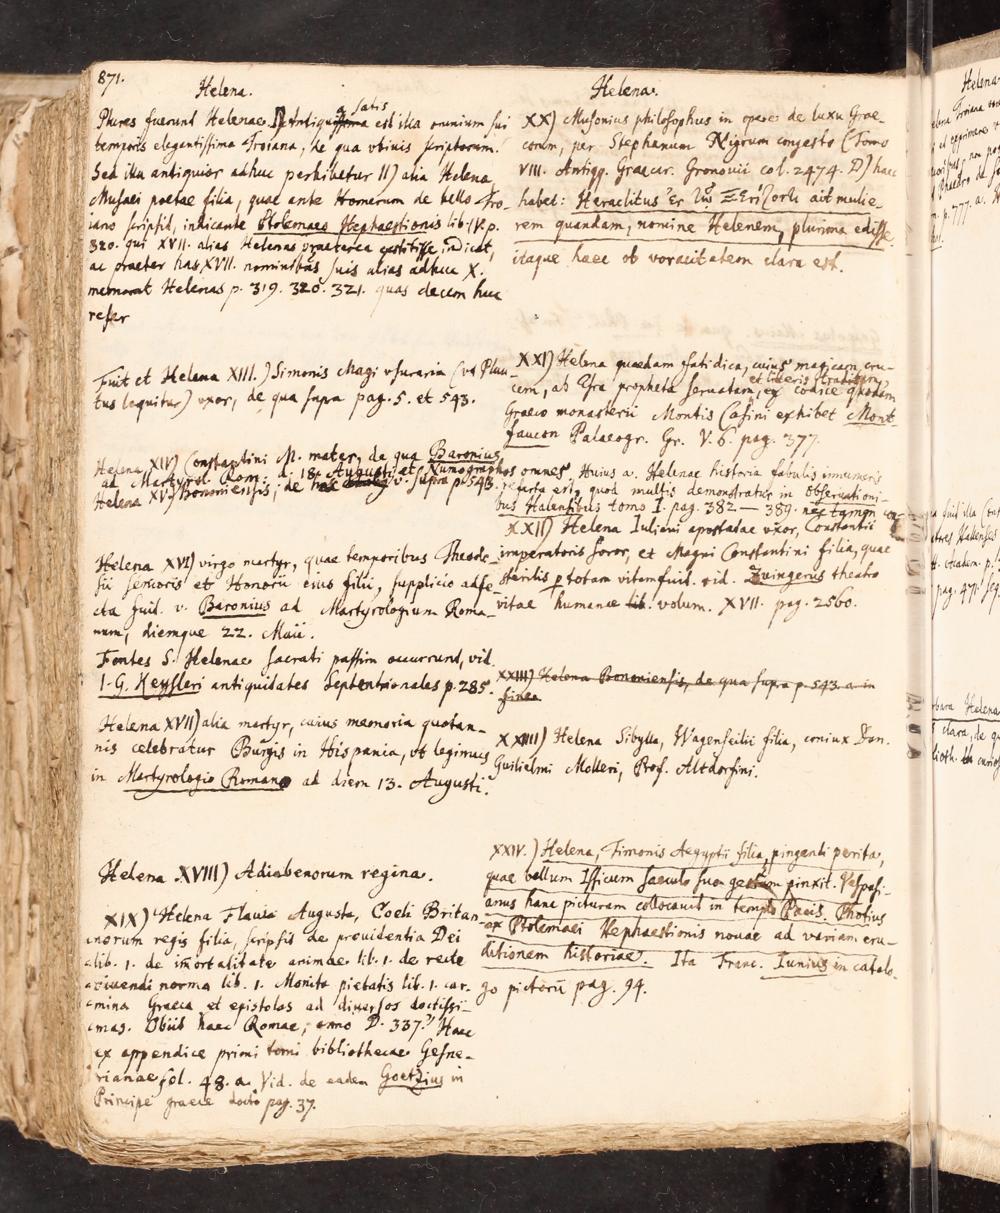 871.
Helena.
Plures fuerunt Helenae. I) Antiqua satis est illa omnium sui
temporis elegantissima Troiana, de qua vbiuis scriptorum.
Sed illa antiquior adhuc perhibetur II) alia Helena
Musaei poetae filia, quae ante Homerum de bello Tro-
iano scripsit, indicante Ptolemaeo Hephaestionis lib. IV. p.
320. qui XVII. alias Helenas praeterea exstitisse indicat,
ac praeter has XVII. nominibus suis alias adhuc X.
memorat Helenas p. 319. 320. 321. quas decem huc
refer
Fuit et Helena XIII.) Simonis Magi vsuraria (vt Plau-
tus loquitur) vxor, de qua supra pag. 5. et 543.
Helena XIV) Constantini M. mater, de qua Baronius
ad Martyrol. Rom. d. 18. Augusti et Numographos omnes
Helena XV) Bononiensis, de hac v. supra p. 543.
Helena XVI) virgo martyr, quae temporibus Theodo-
sii senioris et Honorii eius filii, supplicio adfe-
cta fuit. v. Baronius ad Martyrologium Roma-
num, diemque 22. Maii.
Fontes S. Helenae sacrati passim occurrunt, vid.
I. G. Keysleri antiquitates Septentrionales p. 285.
Helena XVII) alia martyr, cuius memoria quotan-
nis celebratur Burgis in Hispania, vt legimus
in Martyrologio Romano ad diem 13. Augusti.
Helena XVIII) Adiabenorum regina.
XIX) Helena Flauia Augusta, Coeli Britan-
norum regis filia, scripsit de prouidentia Dei
lib. 1. de immortalitate animae lib. 1. de recte
viuendi norma lib. 1. Monita pietatis lib. 1. car-
mina Graeca et epistolas ad diuersos doctissi-
mas. Obiit haec Romae, anno D. 337. Haec
ex appendice primi tomi bibliothecae Gesne-
rianae fol. 48. a. Vid. de eadem Goetzius in
Principe graece docto pag. 37.
Helena.
XX) Musonius philosophus in opere de luxu Grae-
corum, per Stephanum Nigrum congesto (Tomo
VIII. Antiqq. Graecar. Gronouii col. 2474. D) haec
habet: Heraclitus ait mulie-
rem quandam, nomine Helenem, plurima edisse,
itaque haec ob voracitatem clara est.
XXI) Helena quaedam fatidica, cuius magicam cru-
cem, ab Esra propheta seruatam, et liberis traditam, ex codice quodam
Graeco monasterii Montis Casini exhibet Mont-
faucon Palaeogr. Gr. V. 6. pag. 377.
Huius a. Helenae historia fabulis innumeris
referta est, quod multis demonstratur in Obseruationi-
bus Halensibus tomo I. pag. 382 — 389.
XXII) Helena Iuliani apostatae vxor, Constantii
imperatoris soror, et Magni Constantini filia, quae
sterilis p totam vitam fuit. vid. Zuingerus theatro
vitae humanae lib. volum. XVII. pag. 2560.
XXIII) Helena Bononiensis, de qua supra p. 543. a. in
finea
XXIII) Helena Sibylla, Wagenseilii filia, coniux Dan.
Guilielmi Molleri, Prof. Altdorfini.
XXIV.) Helena, Timonis Aegyptii filia, pingendi perita,
quae bellum Issicum saeculo suo gestum pinxit. Vespasi-
anus hanc picturam collocauit in templo Pacis. Photius
ex Ptolemaei Hephaestionis nouae ad variam eru-
ditionem historiae. Ita Franc. Iunius in catalo-
go pictorum pag. 94.
Helena